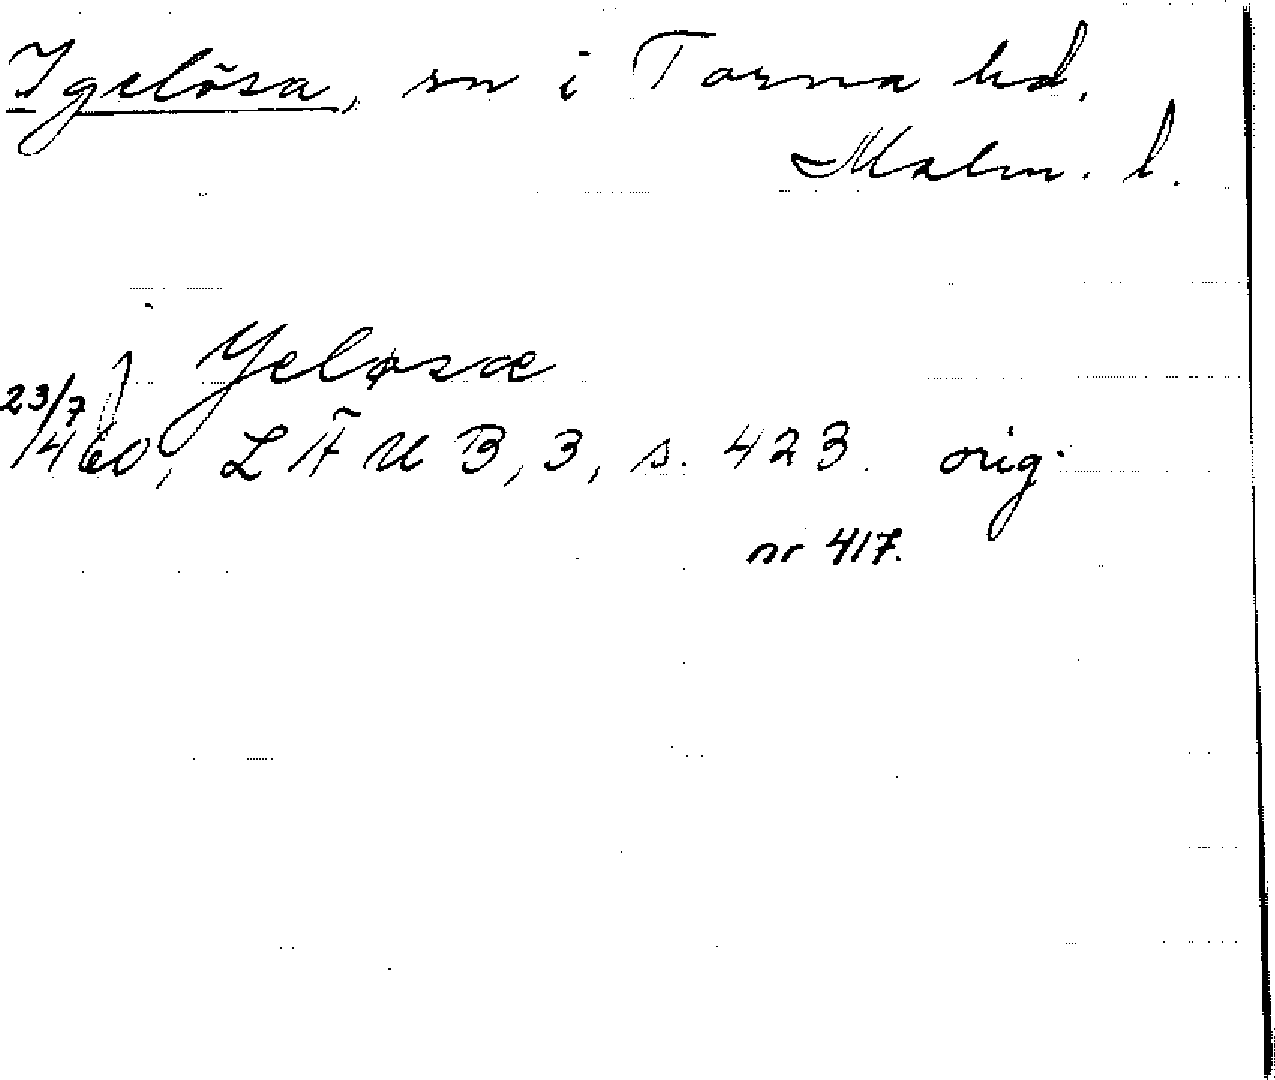 Igelösa, sn i Torna hd.
Malm. l.
Yeløsæ
23/7 1460, LÄUB, 3, s. 423. orig.
nr 417.